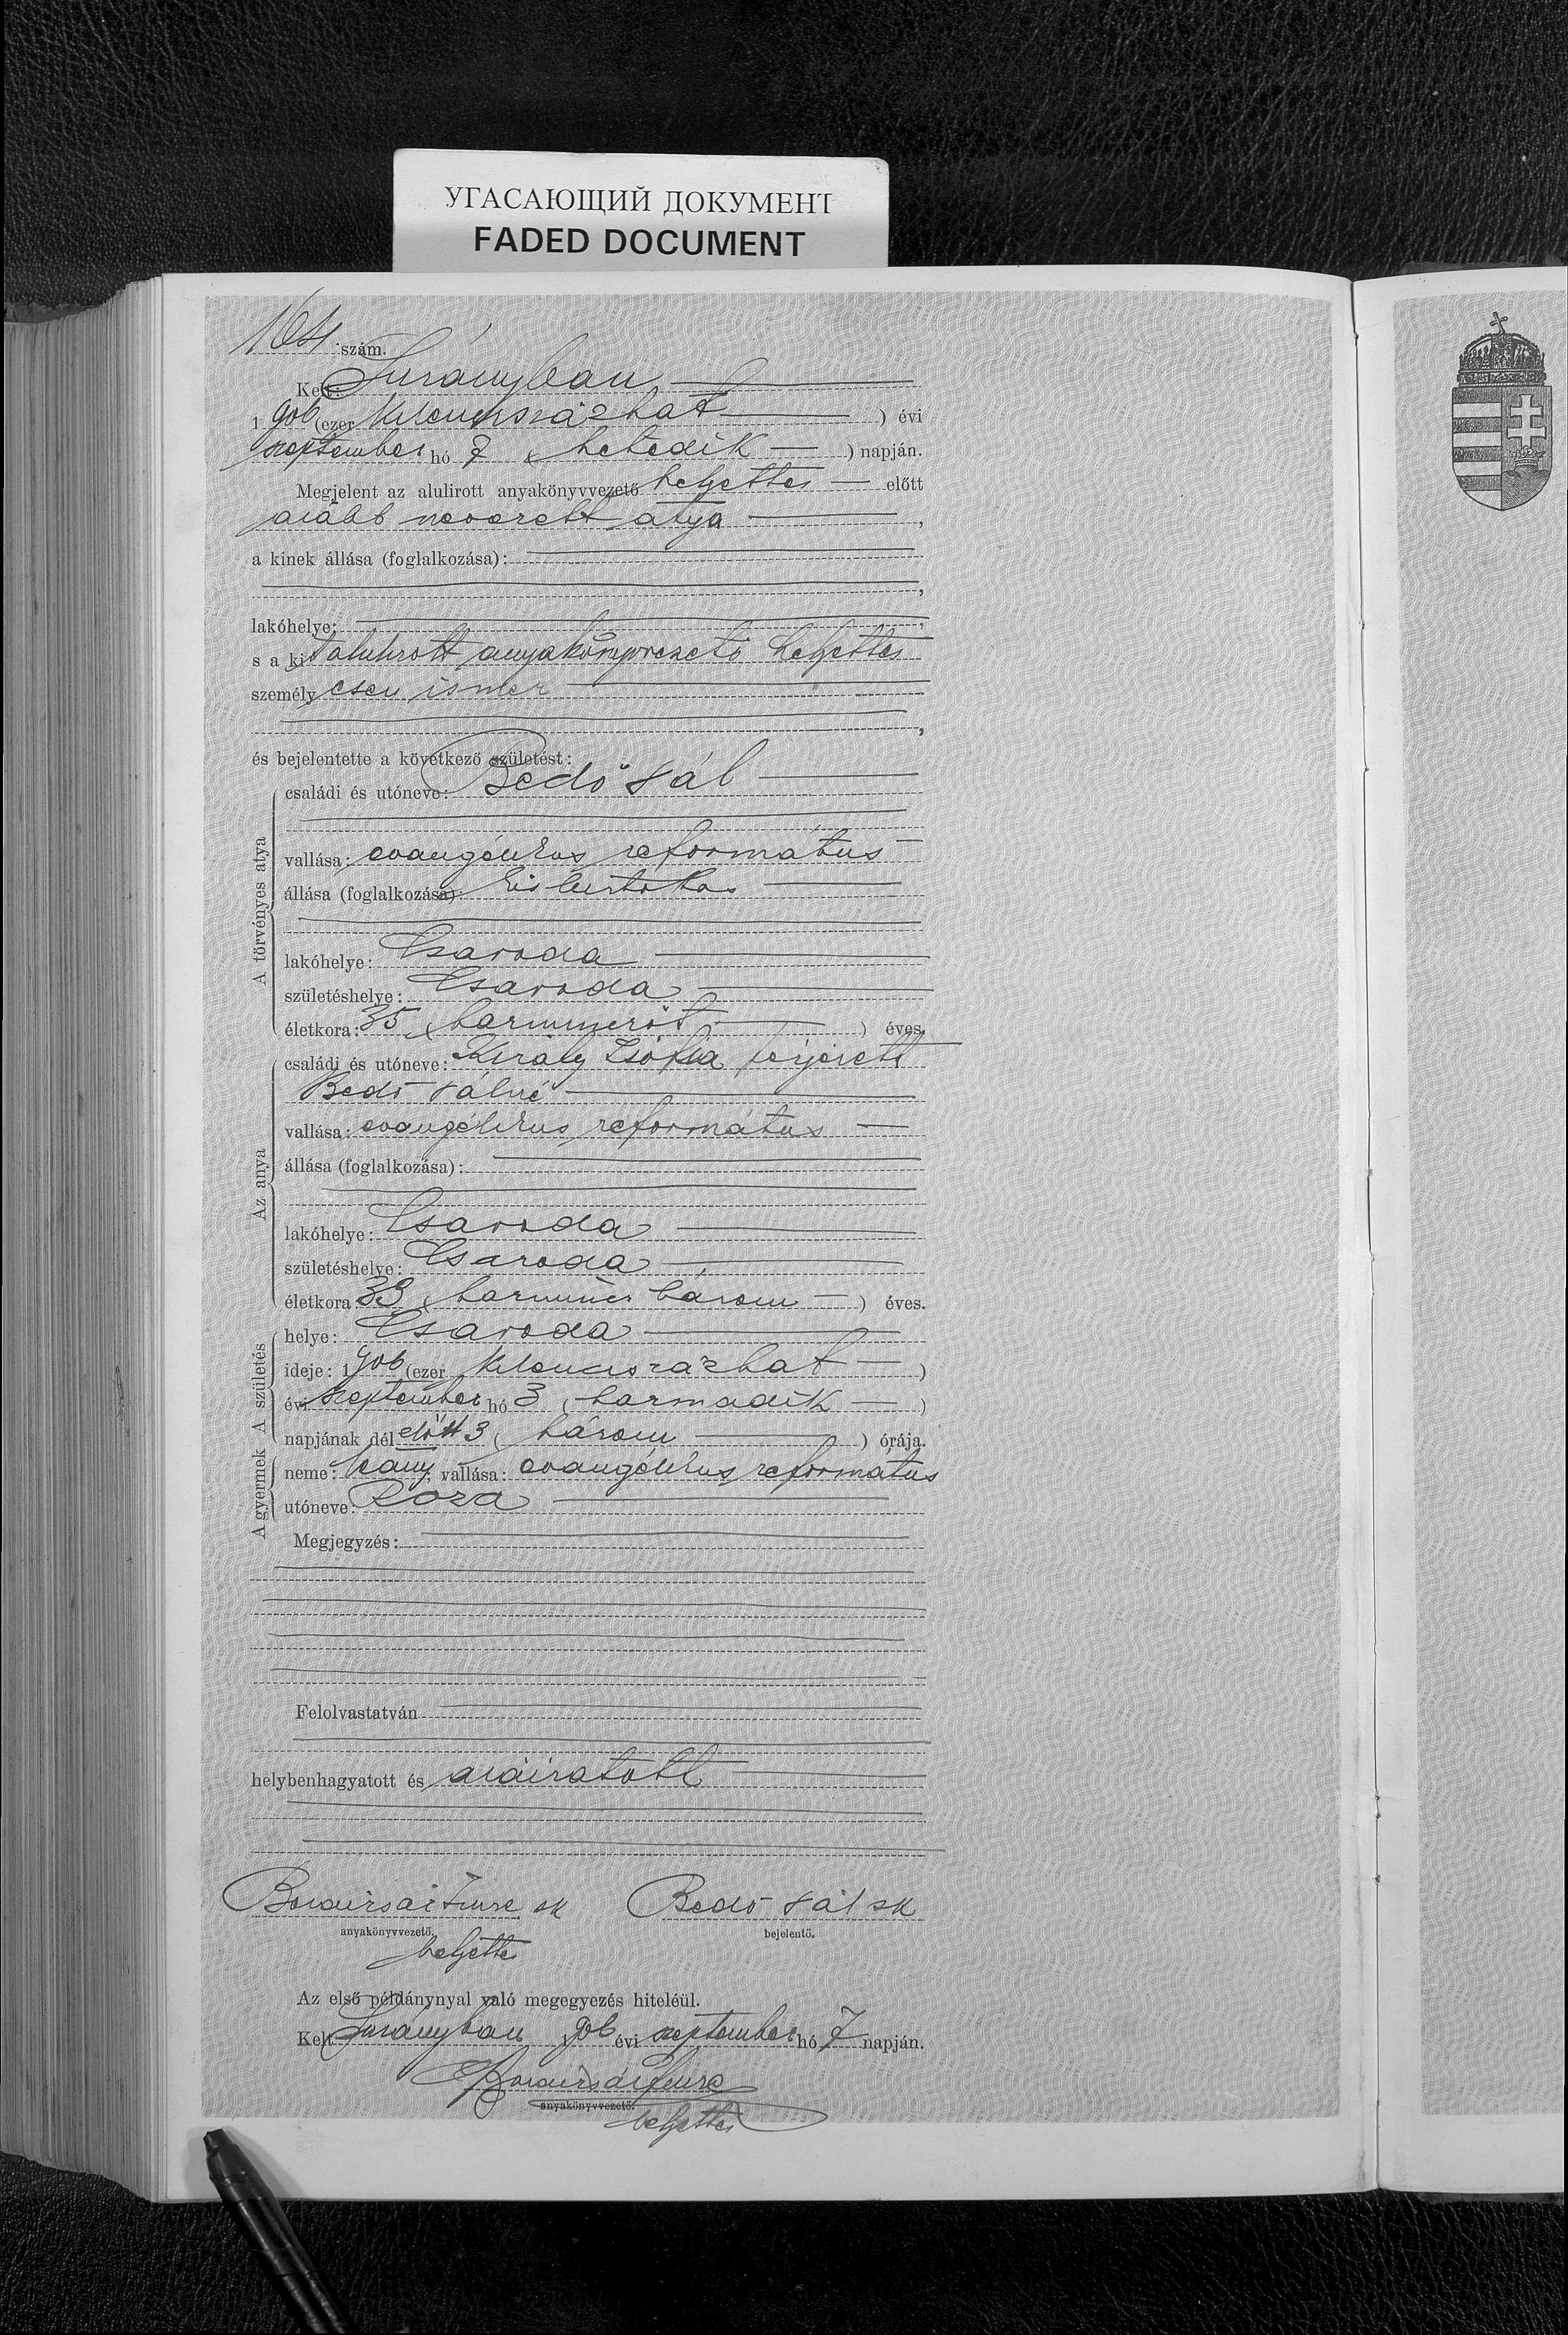 УГАСАЮЩИЙ ДОКУМЕНТ
FADED DOCUMENT
164 szám.
Kelt: Surányban,
1 906 (ezer kilenczszázhat ) évi
szeptember hó 7 ( hetedik ) napján.
Megjelent az alulirott anyakönyvvezető helyettes előtt
alább nevezett atya ,
a kinek állása (foglalkozása):
,
lakóhelye: ,
s a kit alulirott anyakönyvvezető helyettes
személyesen ismer
,
és bejelentette a következő születést:
A törvényes atya
családi és utóneve: Bedő Pál
vallása: evangélikus református
állása (foglalkozása): kisbirtokos
lakóhelye: Csaroda
születéshelye: Csaroda
életkora: 35 ( harminczöt ) éves.
Az anya
családi és utóneve: Király Zsófia férjezett
Bedő Pálné
vallása: evangélikus református
állása (foglalkozása):
lakóhelye: Csaroda
születéshelye: Csaroda
életkora: 33 ( harmincz három ) éves.
A születés
helye: Csaroda
ideje: 1 906 (ezer kilenczszázhat )
évi szeptember hó 3 ( harmadik )
napjának délelőtt 3 ( három ) órája.
A gyermek
neme: leány, vallása: evangélikus református
utóneve: Róza
Megjegyzés:
Felolvastatván
helybenhagyatott és aláiratott
Imre sk Bedő Pál sk
anyakönyvvezető. bejelentő.
helyettes
Az első példánynyal való megegyezés hiteléül.
Kelt Surányban 1906 évi szeptember hó 7 napján.
Imre
anyakönyvvezető.
helyettes